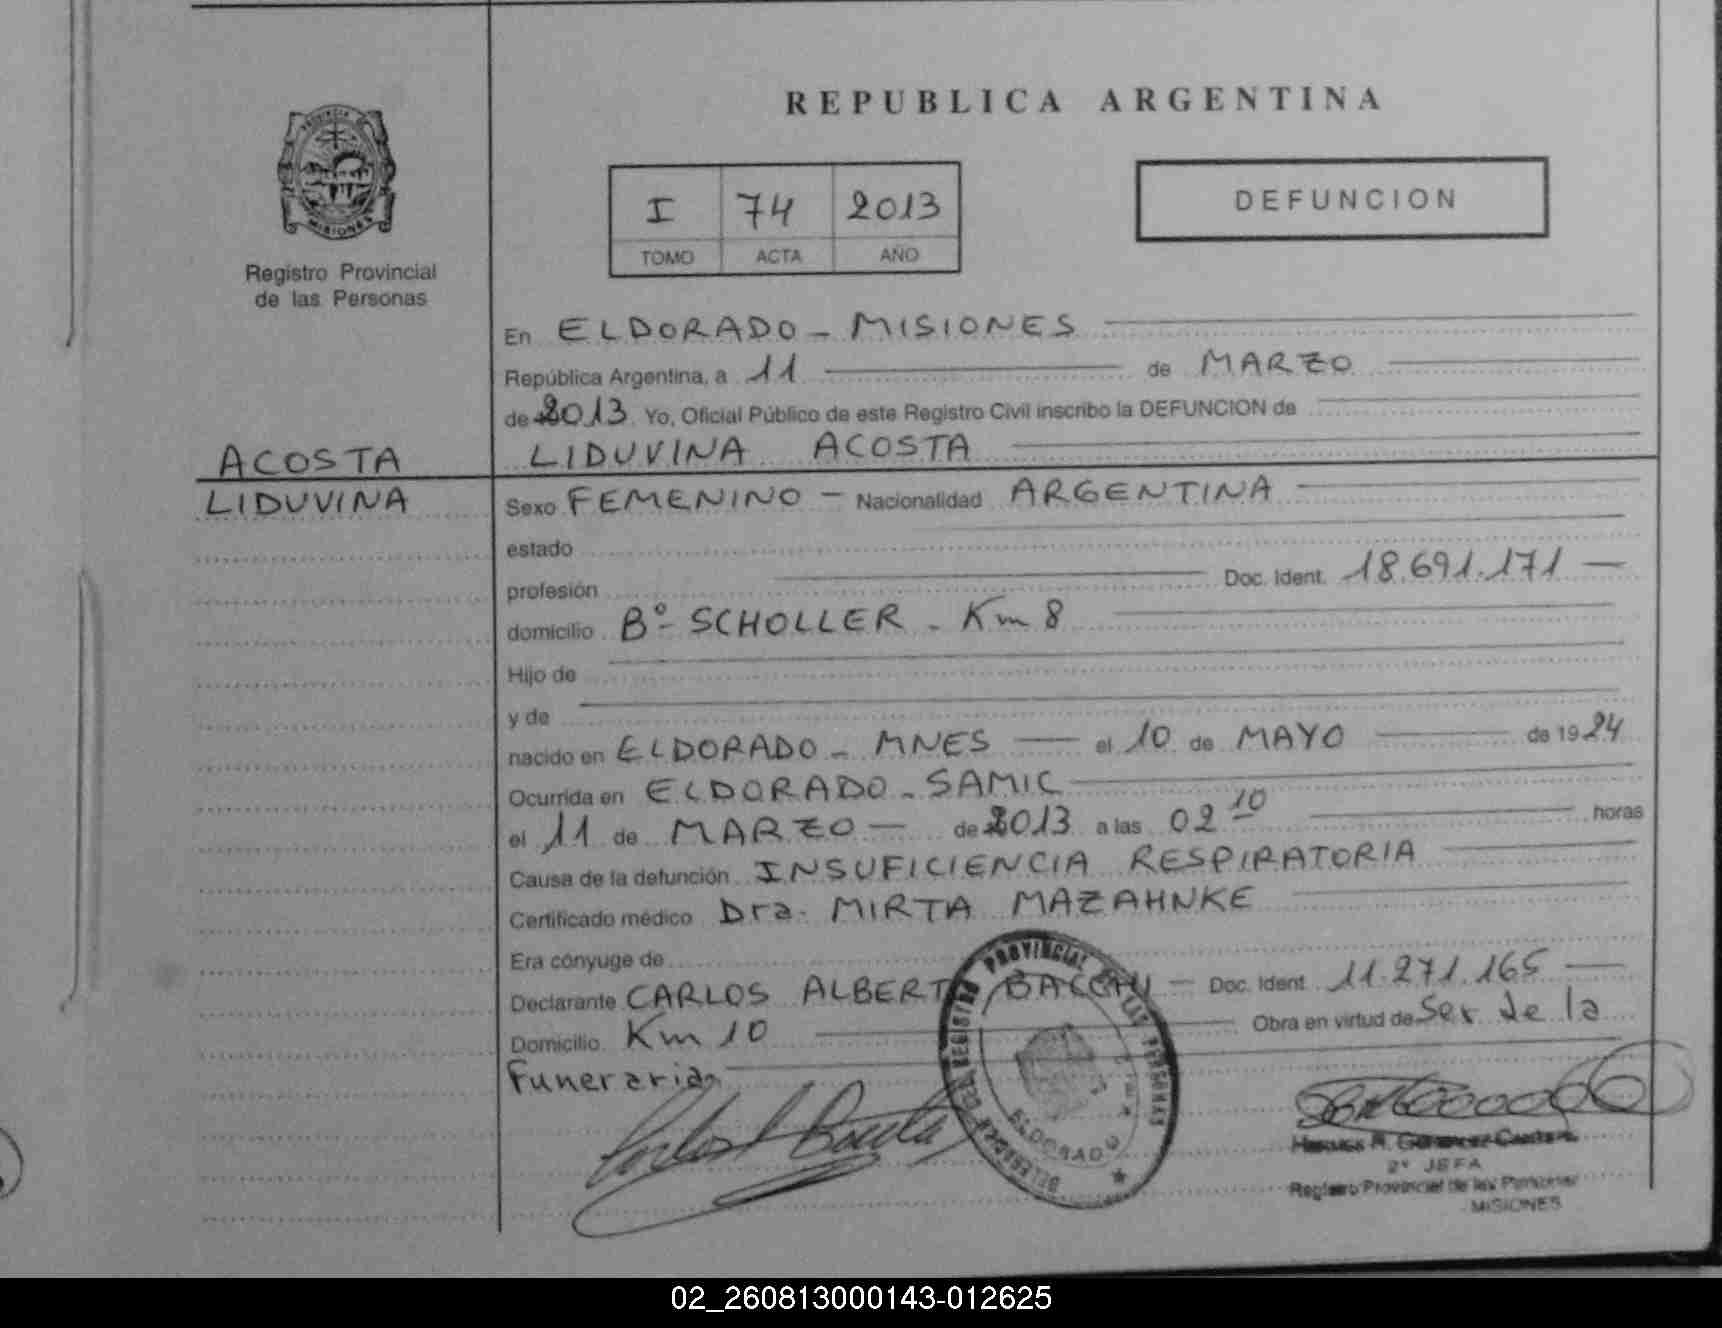 REPUBLICA ARGENTINA
PROVINCIA DE
MISIONES
Registro Provincial
de las Personas
I 74 2013
TOMO ACTA AÑO
DEFUNCION
En ELDORADO - MISIONES
República Argentina, a 11 de MARZO
de 2013 Yo, Oficial Público de este Registro Civil inscribo la DEFUNCION de
ACOSTA
LIDUVINA
LIDUVINA ACOSTA
Sexo FEMENINO - Nacionalidad ARGENTINA
estado
profesión Doc. Ident. 18.691.171
domicilio Bº SCHOLLER - Km 8
Hijo de
y de
nacido en ELDORADO - MNES el 10 de MAYO de 1924
Ocurrida en ELDORADO - SAMIC
el 11 de MARZO de 2013 a las 02 10 horas
Causa de la defunción INSUFICIENCIA RESPIRATORIA
Certificado médico Dra. MIRTA MAZAHNKE
Era cónyuge de
Declarante CARLOS ALBERTO Doc. Ident. 11.271.165
Domicilio Km 10 Obra en virtud de Ser de la
Funeraria
REGISTRO PROVINCIAL DE LAS PERSONAS
ELDORADO
2º JEFA
Registro Provincial de las Personas
MISIONES
02_260813000143-012625